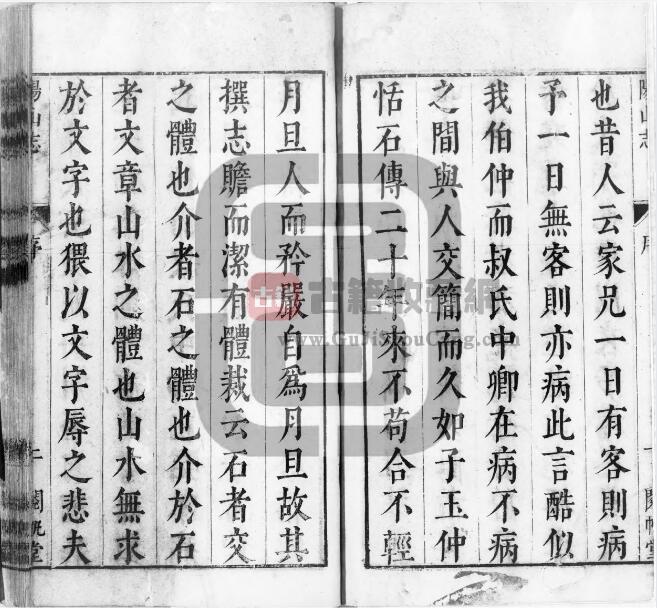 也昔人云家兄一日有客則病
予一日無客則亦病此言酷似
我伯仲而叔氏中卿在病不病
之間與人交簡而久如子玉仲
恬石傳二十年來不苟合不輕
月旦人而矜嚴自為月旦故其
撰志贍而潔有體裁云石者交
之體也介者石之體也介於石
者文章山水之體也山水無求
於文字也猥以文字辱之悲夫
陽山志
序
古籍
古籍收攷網
www.GujiShouCang.com